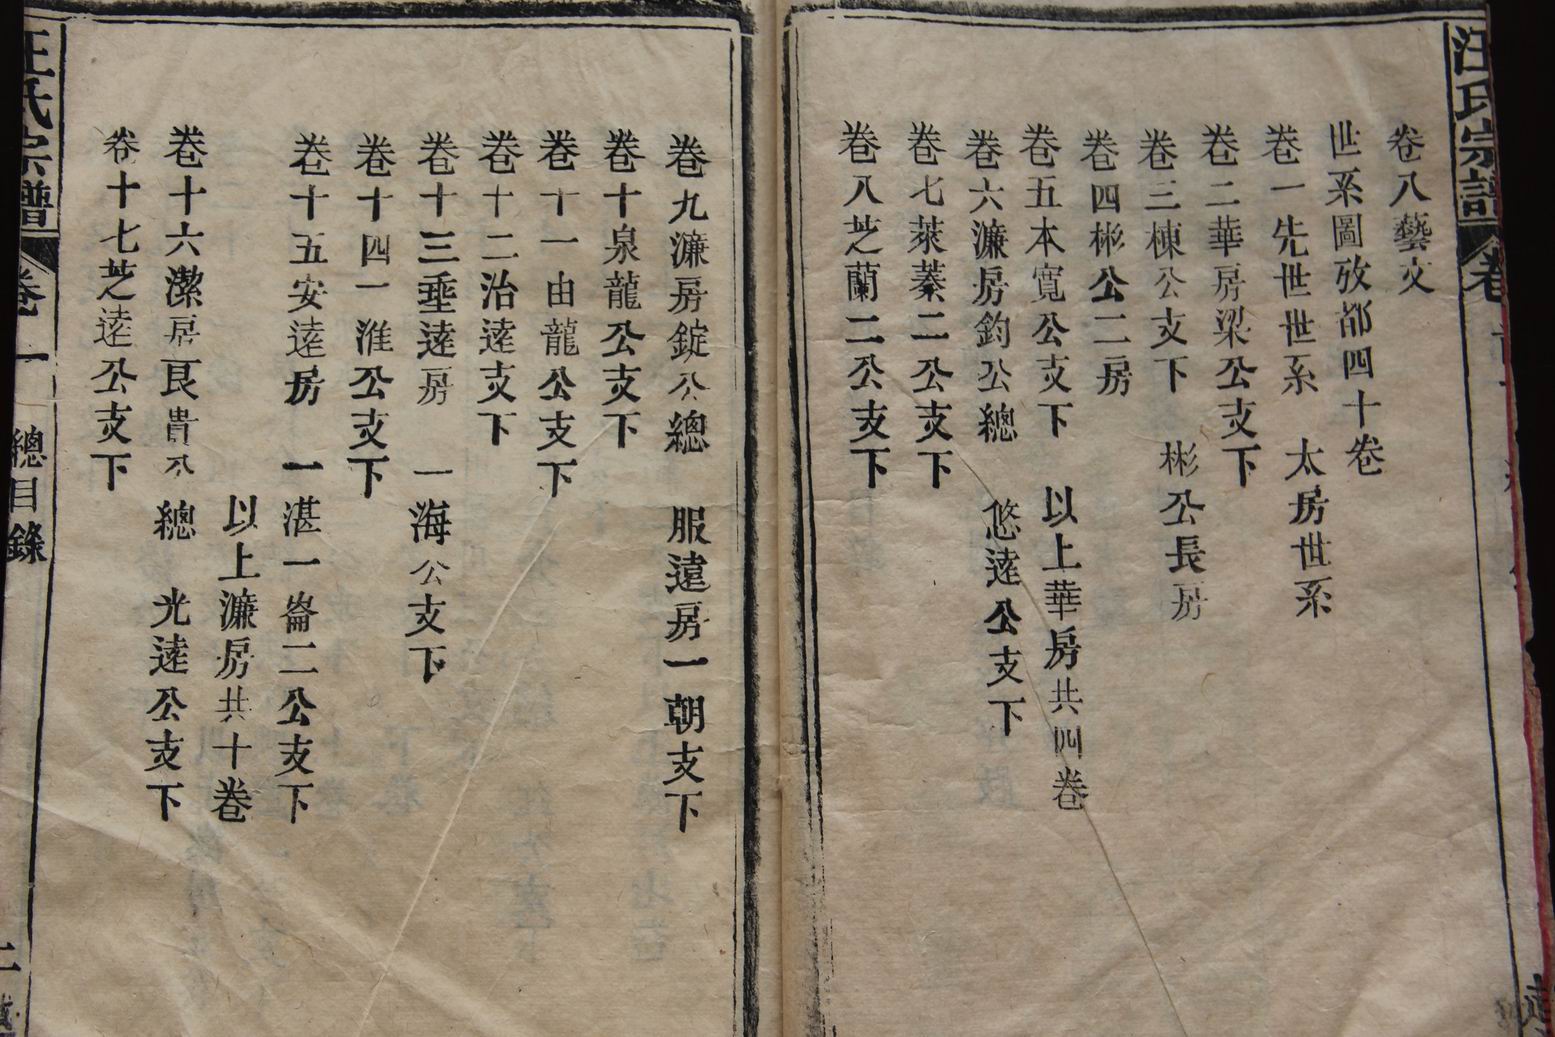 汪氏宗譜
卷八藝文
世系圖攷都四十卷
卷一先世世系 太房世系
卷二華房梁公支下
卷三棟公支下 彬公長房
卷四彬公二房
卷五本寬公支下 以上華房共四卷
卷六濂房鈞公總 悠逵公支下
卷七萊蓁二公支下
卷八芝蘭二公支下
卷九濂房錠公總 服逵房一朝支下
卷十泉龍公支下
卷十一由龍公支下
卷十二治逵支下
卷十三垂逵房 一海公支下
卷十四一淮公支下
卷十五安逵房 一湛一崙二公支下
以上濂房共十卷
卷十六潔房艮貴公總 光逵公支下
卷十七芝逵公支下
汪氏宗譜 卷一 總目錄